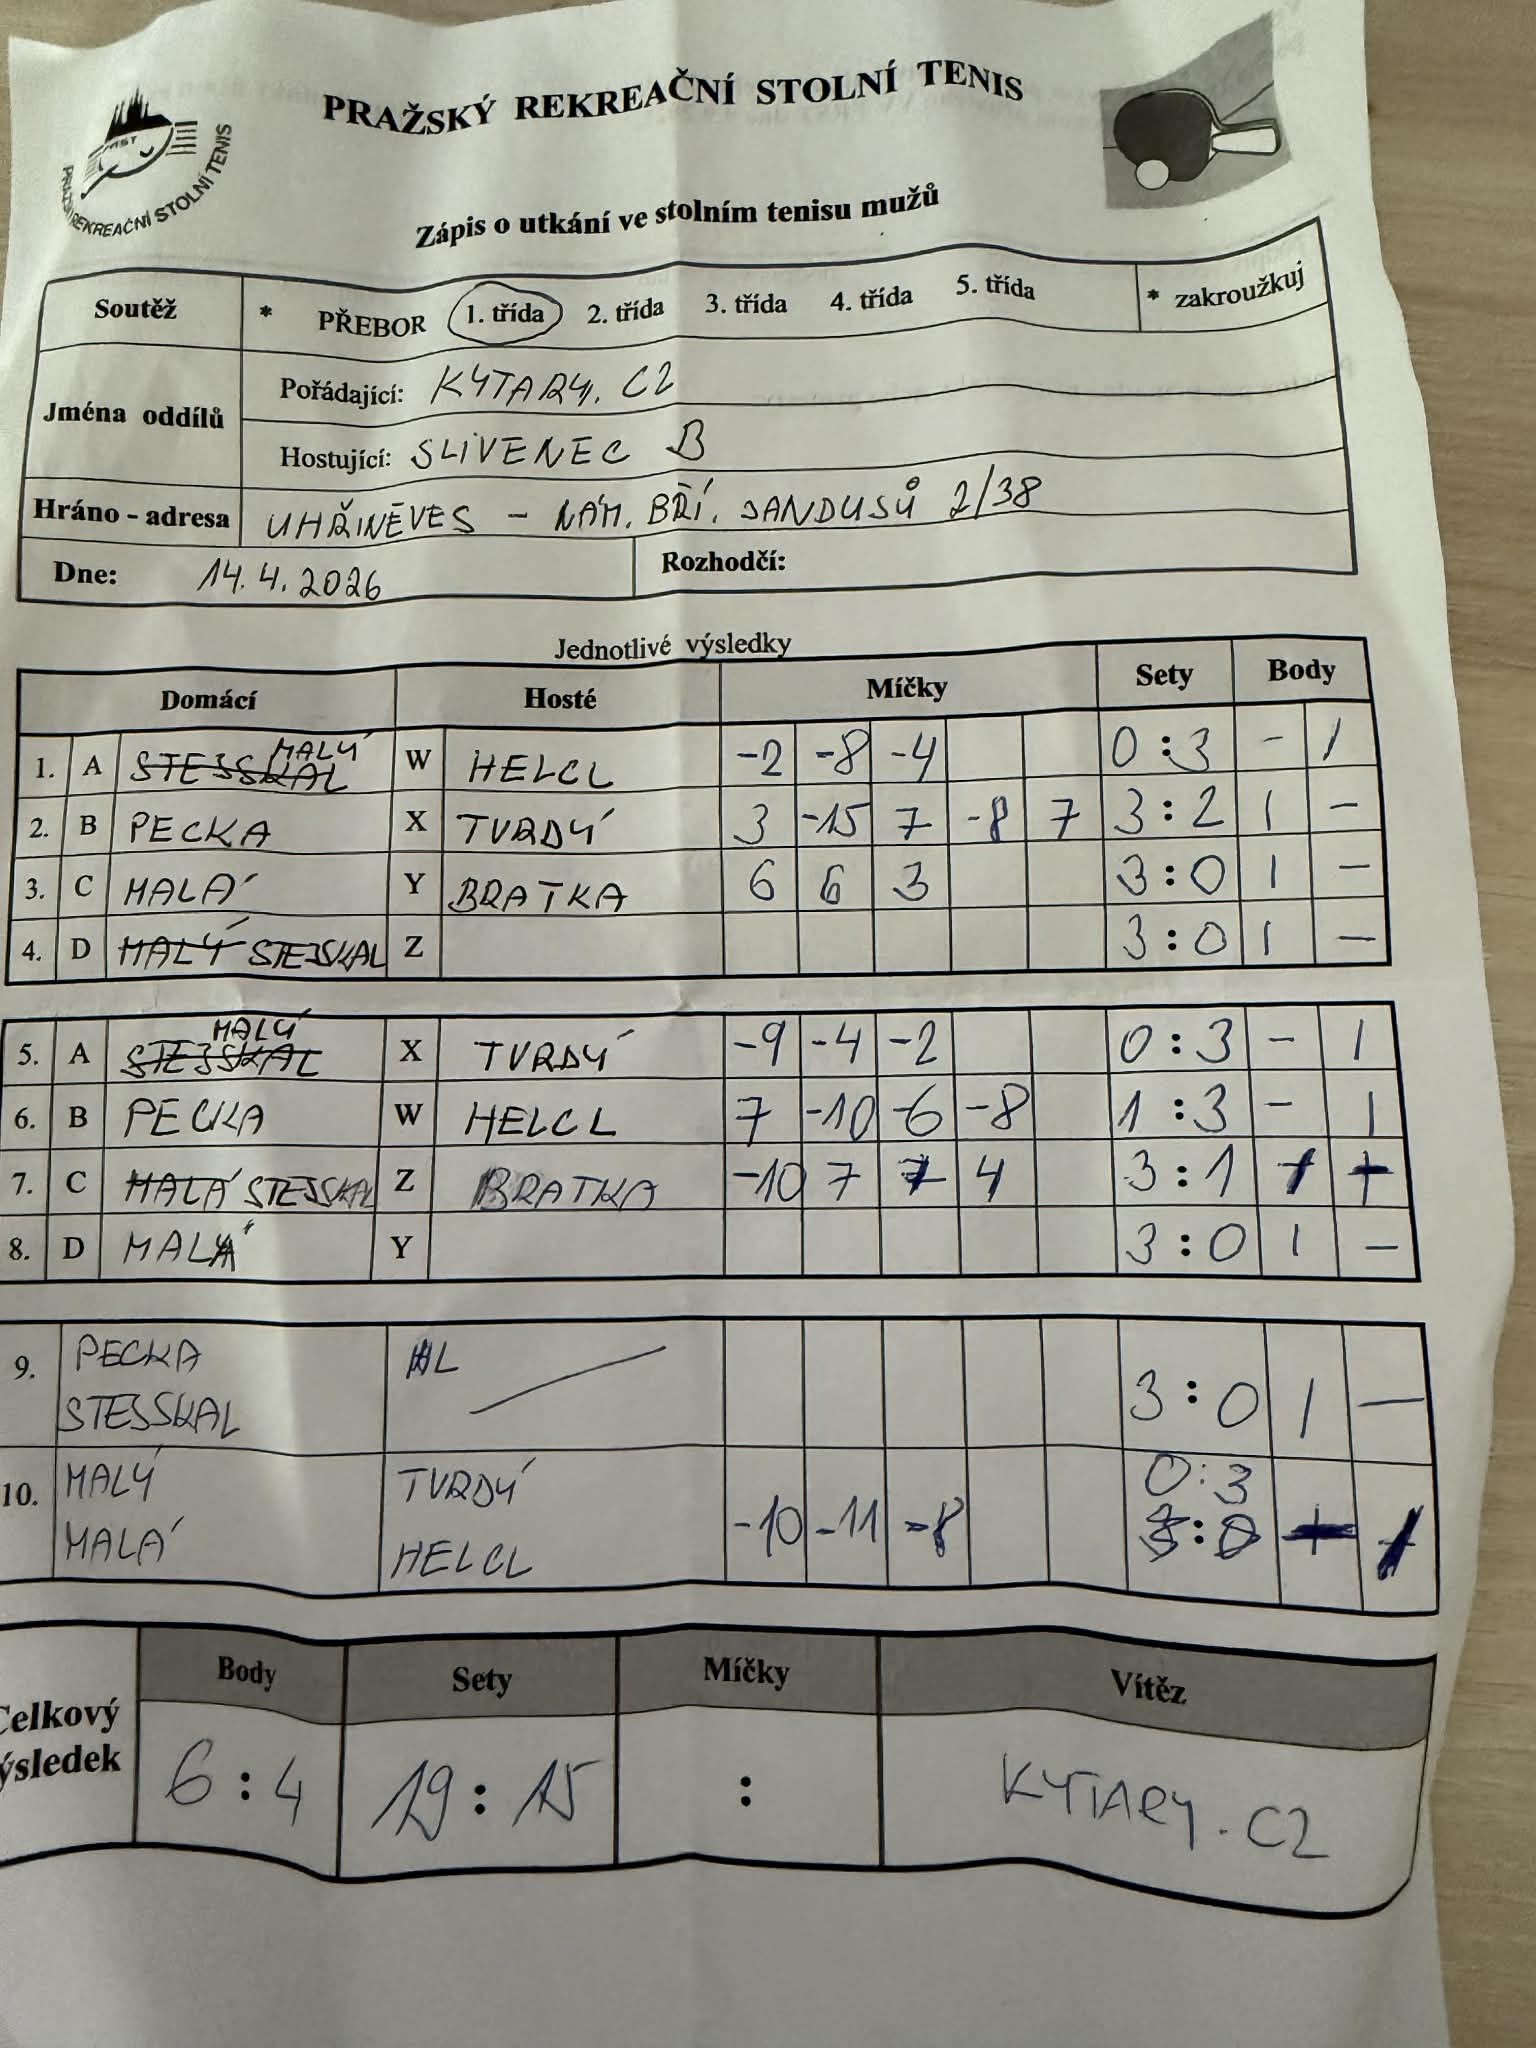 PRAŽSKÝ REKREAČNÍ STOLNÍ TENIS
PRAŽSKÝ REKREAČNÍ STOLNÍ TENIS
Zápis o utkání ve stolním tenisu mužů
Soutěž * PŘEBOR 1. třída 2. třída 3. třída 4. třída 5. třída * zakroužkuj
Jména oddílů
Pořádající: KYTARY. C2
Hostující: SLIVENEC B
Hráno - adresa UHŘINĚVES - NÁM. BŘÍ. JANDUSŮ 2/38
Dne: 14.4.2026 Rozhodčí:
Jednotlivé výsledky
Domácí Hosté Míčky Sety Body
1. A STEJSKAL MALÝ W HELCL -2 -8 -4 0 : 3 - 1
2. B PECKA X TVRDÝ 3 -15 7 -8 7 3 : 2 1 -
3. C MALÁ Y BRATKA 6 6 3 3 : 0 1 -
4. D MALÝ STEJSKAL Z 3 : 0 1 -
5. A STEJSKAL MALÝ X TVRDÝ -9 -4 -2 0 : 3 - 1
6. B PECKA W HELCL 7 -10 -6 -8 1 : 3 - 1
7. C MALÁ STEJSKAL Z BRATKA -10 7 7 4 3 : 1
8. D MALÁ Y 3 : 0 1 -
9. PECKA
STEJSKAL 3 : 0 1 -
10. MALÝ TVRDÝ 0 : 3
MALÁ HELCL -10 -11 -8
Body Sety Míčky Vítěz
Celkový
výsledek 6 : 4 19 : 15 : KYTARY. C2